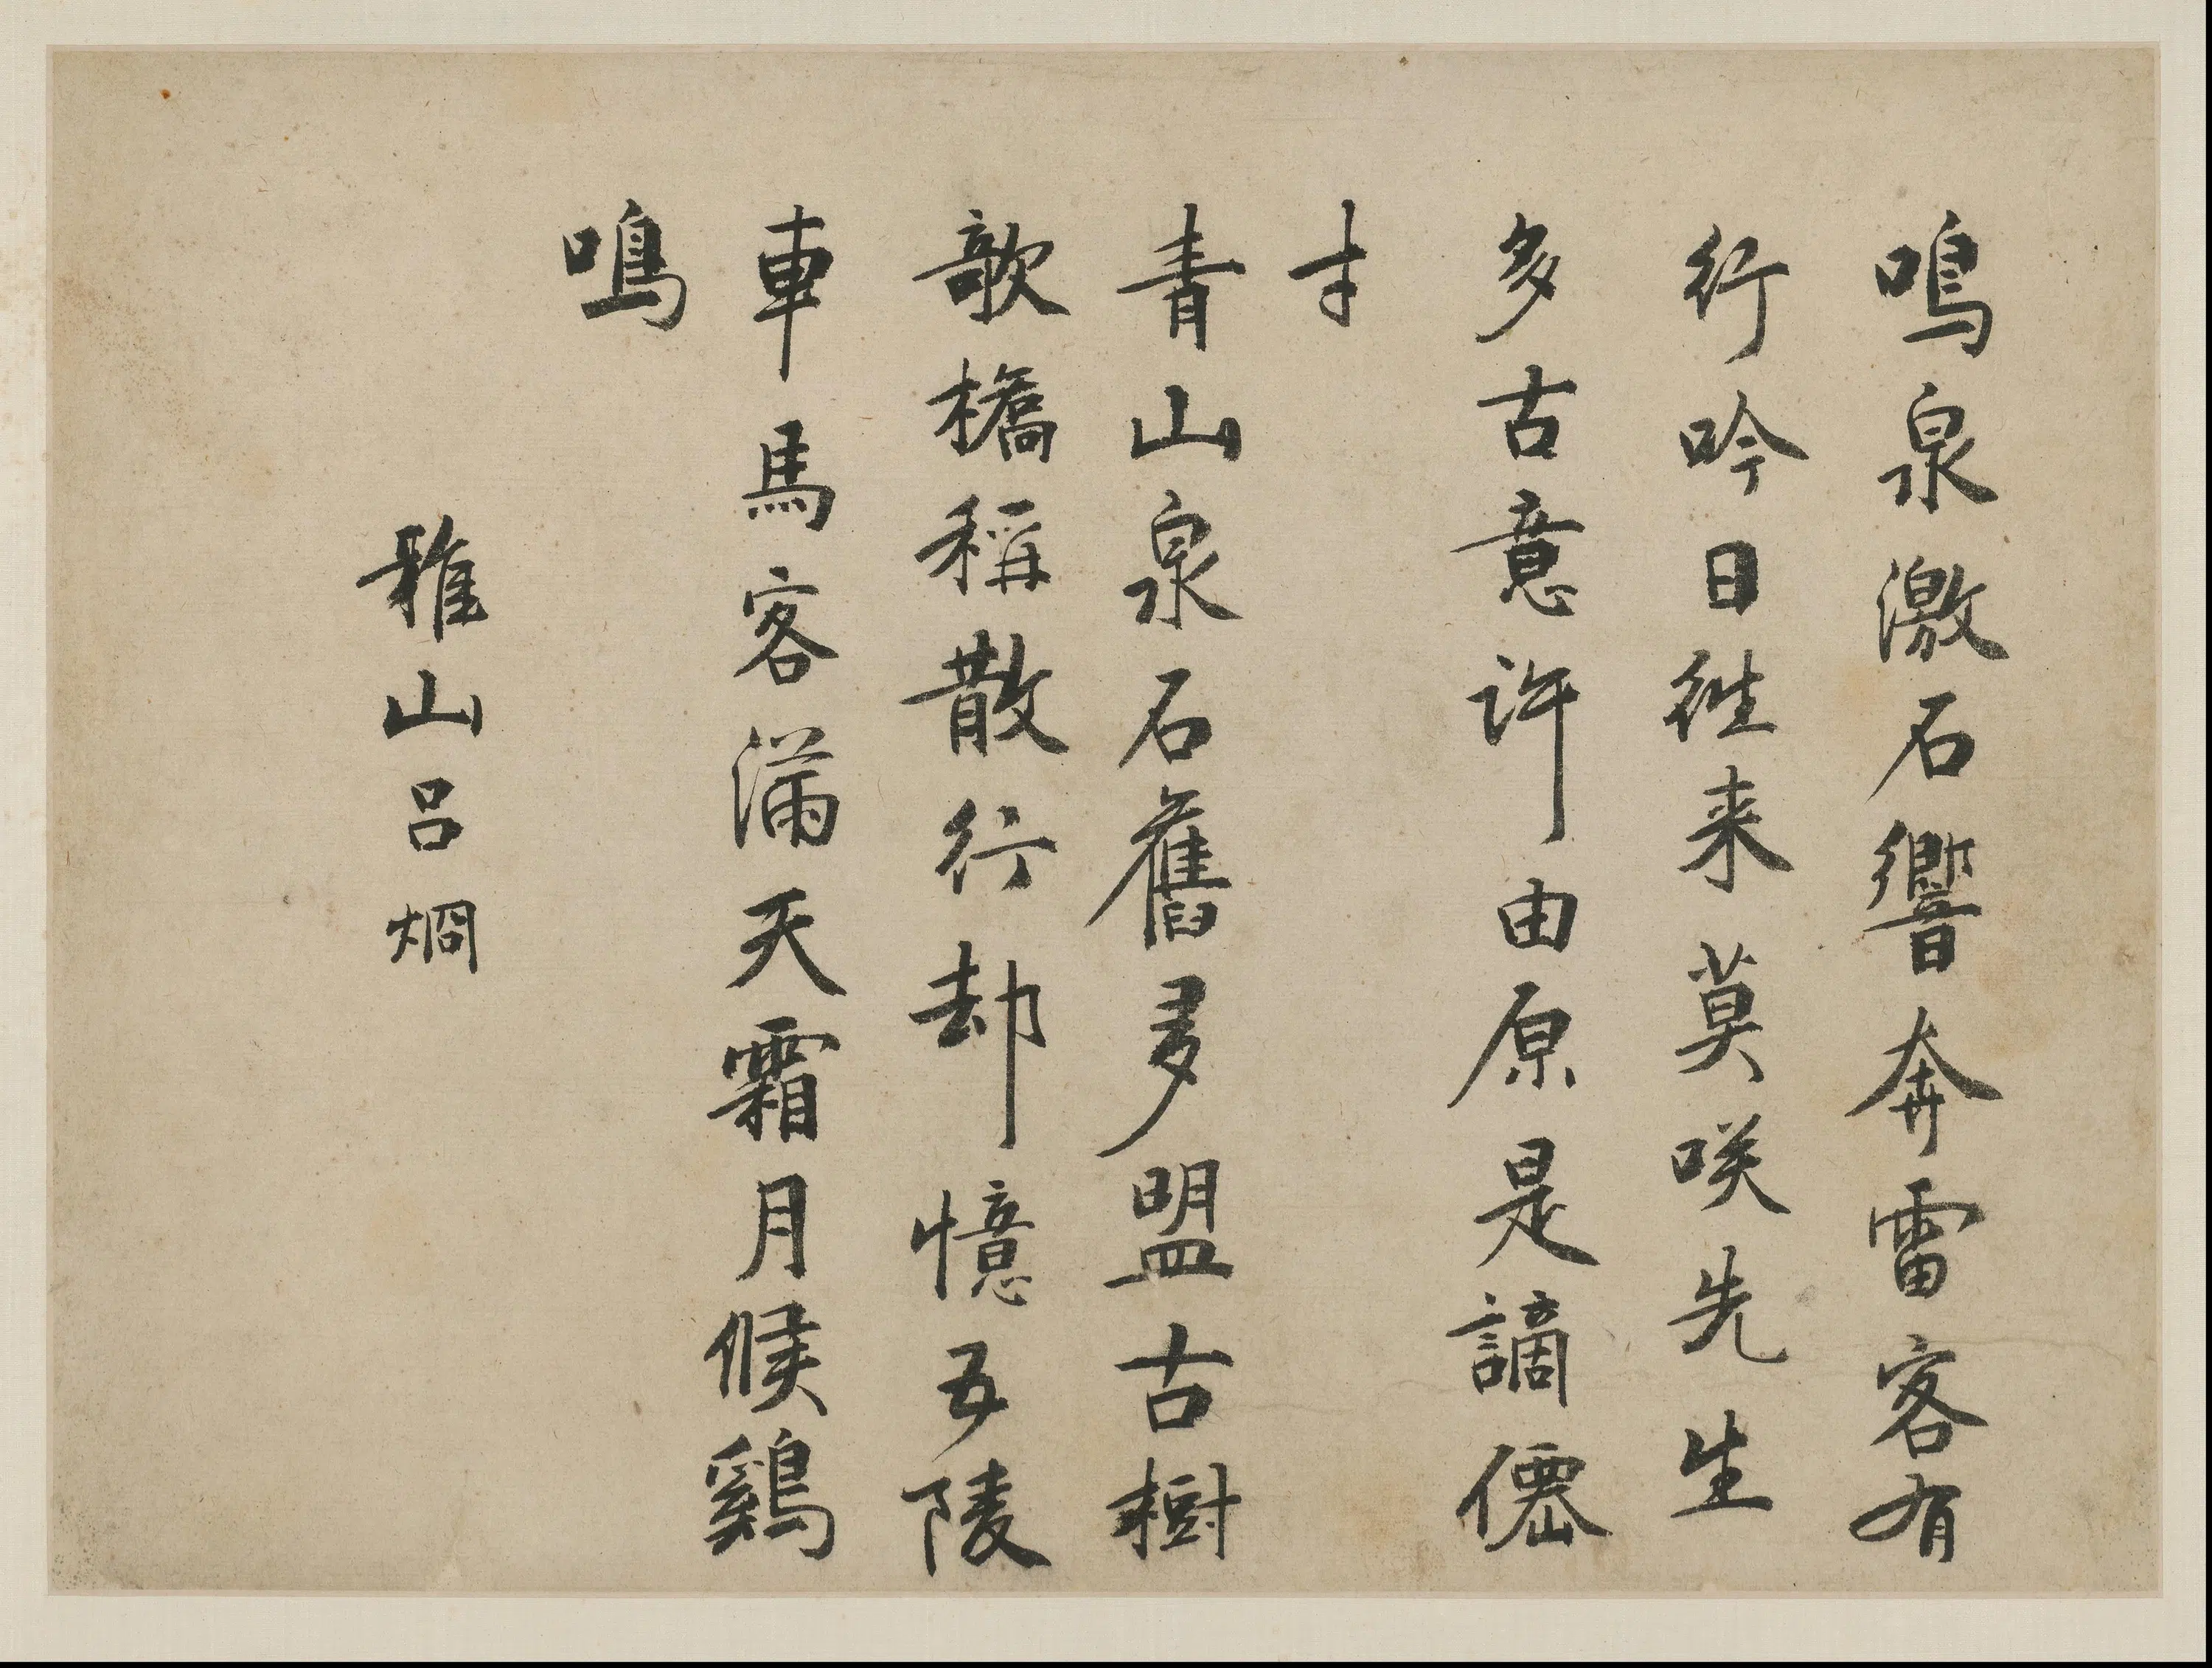 鳴泉激石響奔雷客有
行吟日往来莫咲先生
多古意許由原是謫僊
才
青山泉石舊多盟古樹
欹橋稱散行却憶五陵
車馬客滿天霜月候鷄
鳴
雅山呂焵